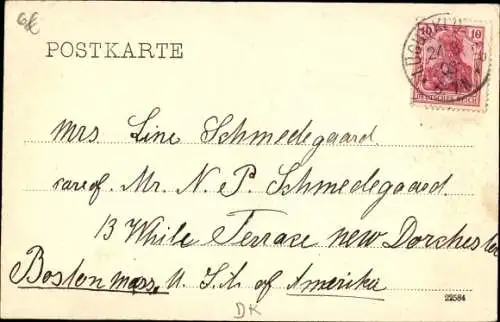 6€
POSTKARTE
10 10
DEUTSCHES REICH
Mrs. Line Schmedegaard.
care of. Mr. N. P. Schmedegaard.
13 While Terrace new Dorchester
Boston mass. U. S. A. of Amerika
22584
DK